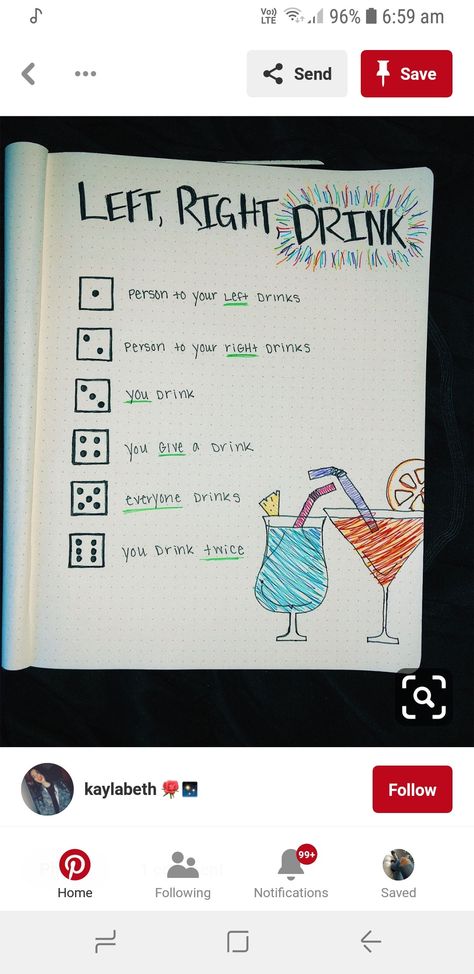 Vo))
LTE
96%
6:59 am
Send
Save
LEFT, RIGHT, DRINK
Person to your Left Drinks
Person to your riGHt Drinks
you Drink
you Give a Drink
everyone Drinks
you Drink twice
kaylabeth
Follow
99+
Home
Following
Notifications
Saved